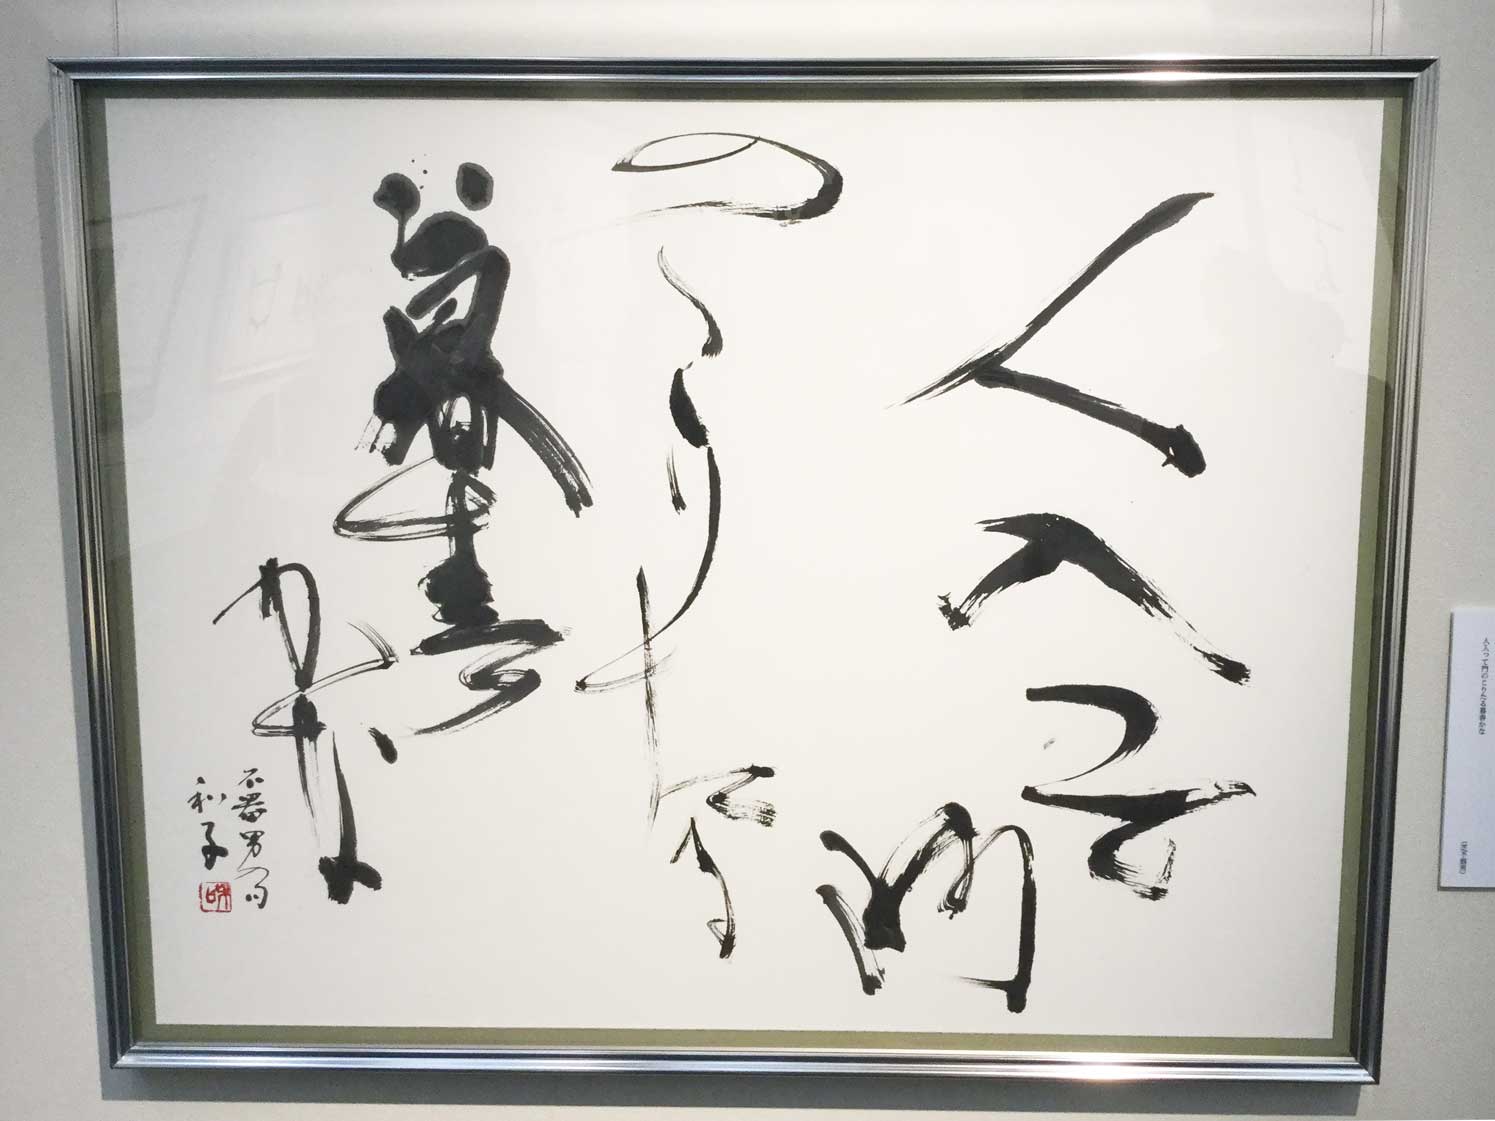 人入つて
門
のこりたる
暮春
かな
不器男句
和子
人入って門のこりたる暮春かな
（芝不器男）